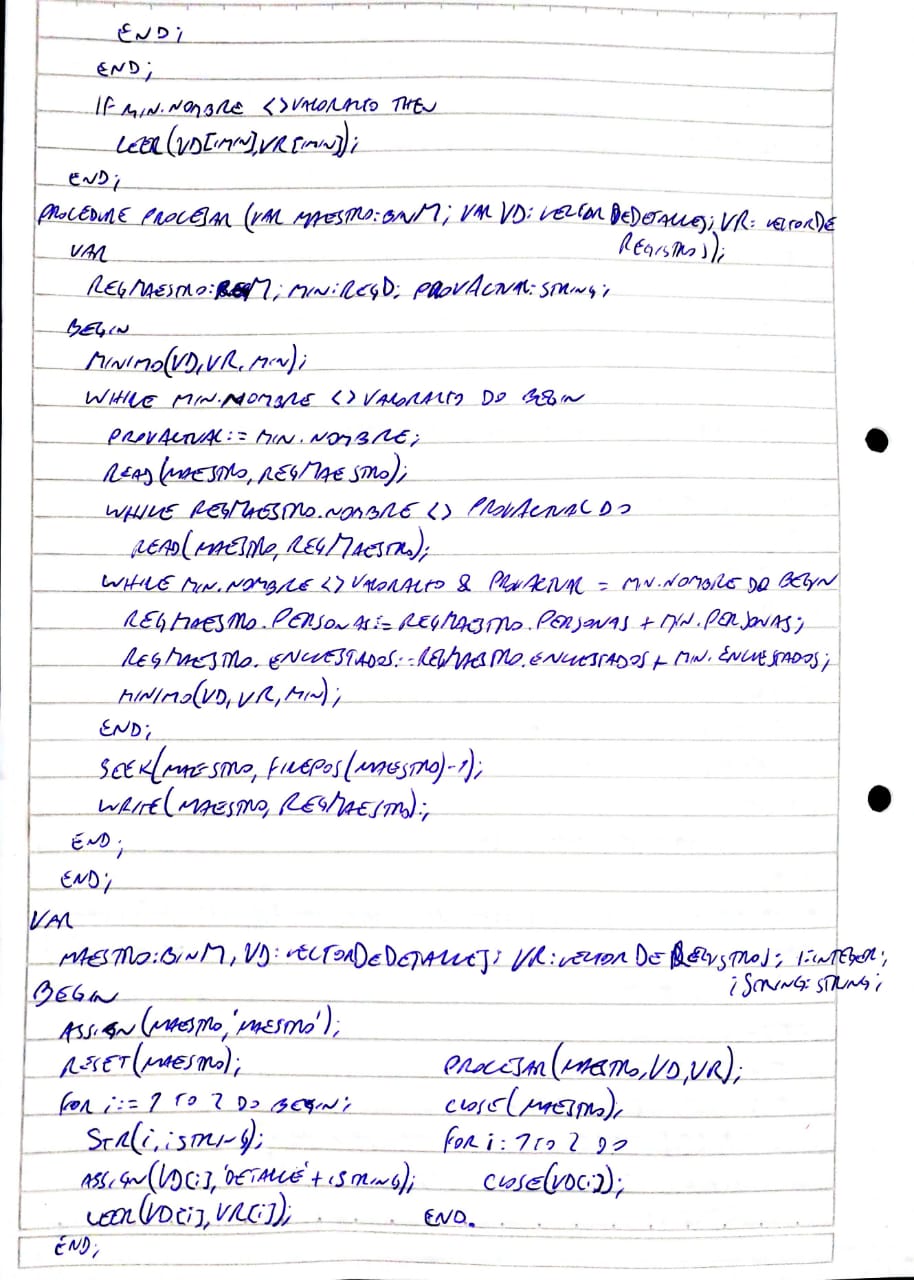 END;
END;
IF MIN.NOMBRE <> VALORALTO THEN
LEER(VD[IMIN],VR[IMIN]);
END;
PROCEDURE PROCESAR (VAR MAESTRO:BINM; VAR VD: VECTORDEDETALLES; VR: VECTORDE
REGISTROS);
VAR
REGMAESTRO:REGM; MIN:REGD; PROVACTUAL:STRING;
BEGIN
MINIMO(VD,VR,MIN);
WHILE MIN.NOMBRE <> VALORALTO DO BEGIN
PROVACTUAL:= MIN.NOMBRE;
READ(MAESTRO, REGMAESTRO);
WHILE REGMAESTRO.NOMBRE <> PROVACTUAL DO
READ(MAESTRO, REGMAESTRO);
WHILE MIN.NOMBRE <> VALORALTO & PROVACTUAL = MIN.NOMBRE DO BEGIN
REGMAESTRO.PERSONAS:= REGMAESTRO.PERSONAS + MIN.PERSONAS;
REGMAESTRO.ENCUESTADOS:=REGMAESTRO.ENCUESTADOS + MIN.ENCUESTADOS;
MINIMO(VD,VR,MIN);
END;
SEEK(MAESTRO, FILEPOS(MAESTRO)-1);
WRITE(MAESTRO, REGMAESTRO);
END;
END;
VAR
MAESTRO:BINM, VD:VECTORDEDETALLES; VR:VECTORDEREGISTROS; I:INTEGER;
iSTRING:STRING;
BEGIN
ASSIGN(MAESTRO,'MAESTRO');
RESET(MAESTRO);
FOR i:= 1 TO 2 DO BEGIN;
STR(i,iSTRING);
ASSIGN(VD[i],'DETALLE'+iSTRING);
LEER(VD[i],VR[i]);
END;
PROCESAR(MAESTRO,VD,VR);
CLOSE(MAESTRO);
FOR i: 1 TO 2 DO
CLOSE(VD[i]);
END.